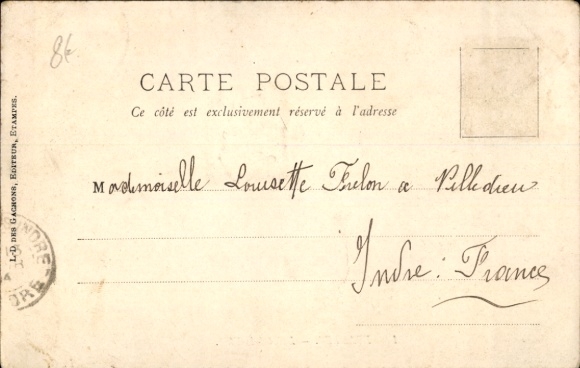 8f
CARTE POSTALE
Ce côté est exclusivement réservé à l'adresse
L.-D DES GACHONS, EDITEUR, ETAMPES.
Mademoiselle Louisette Frelon a Villedieu
Indre. France
INDRE
DRE